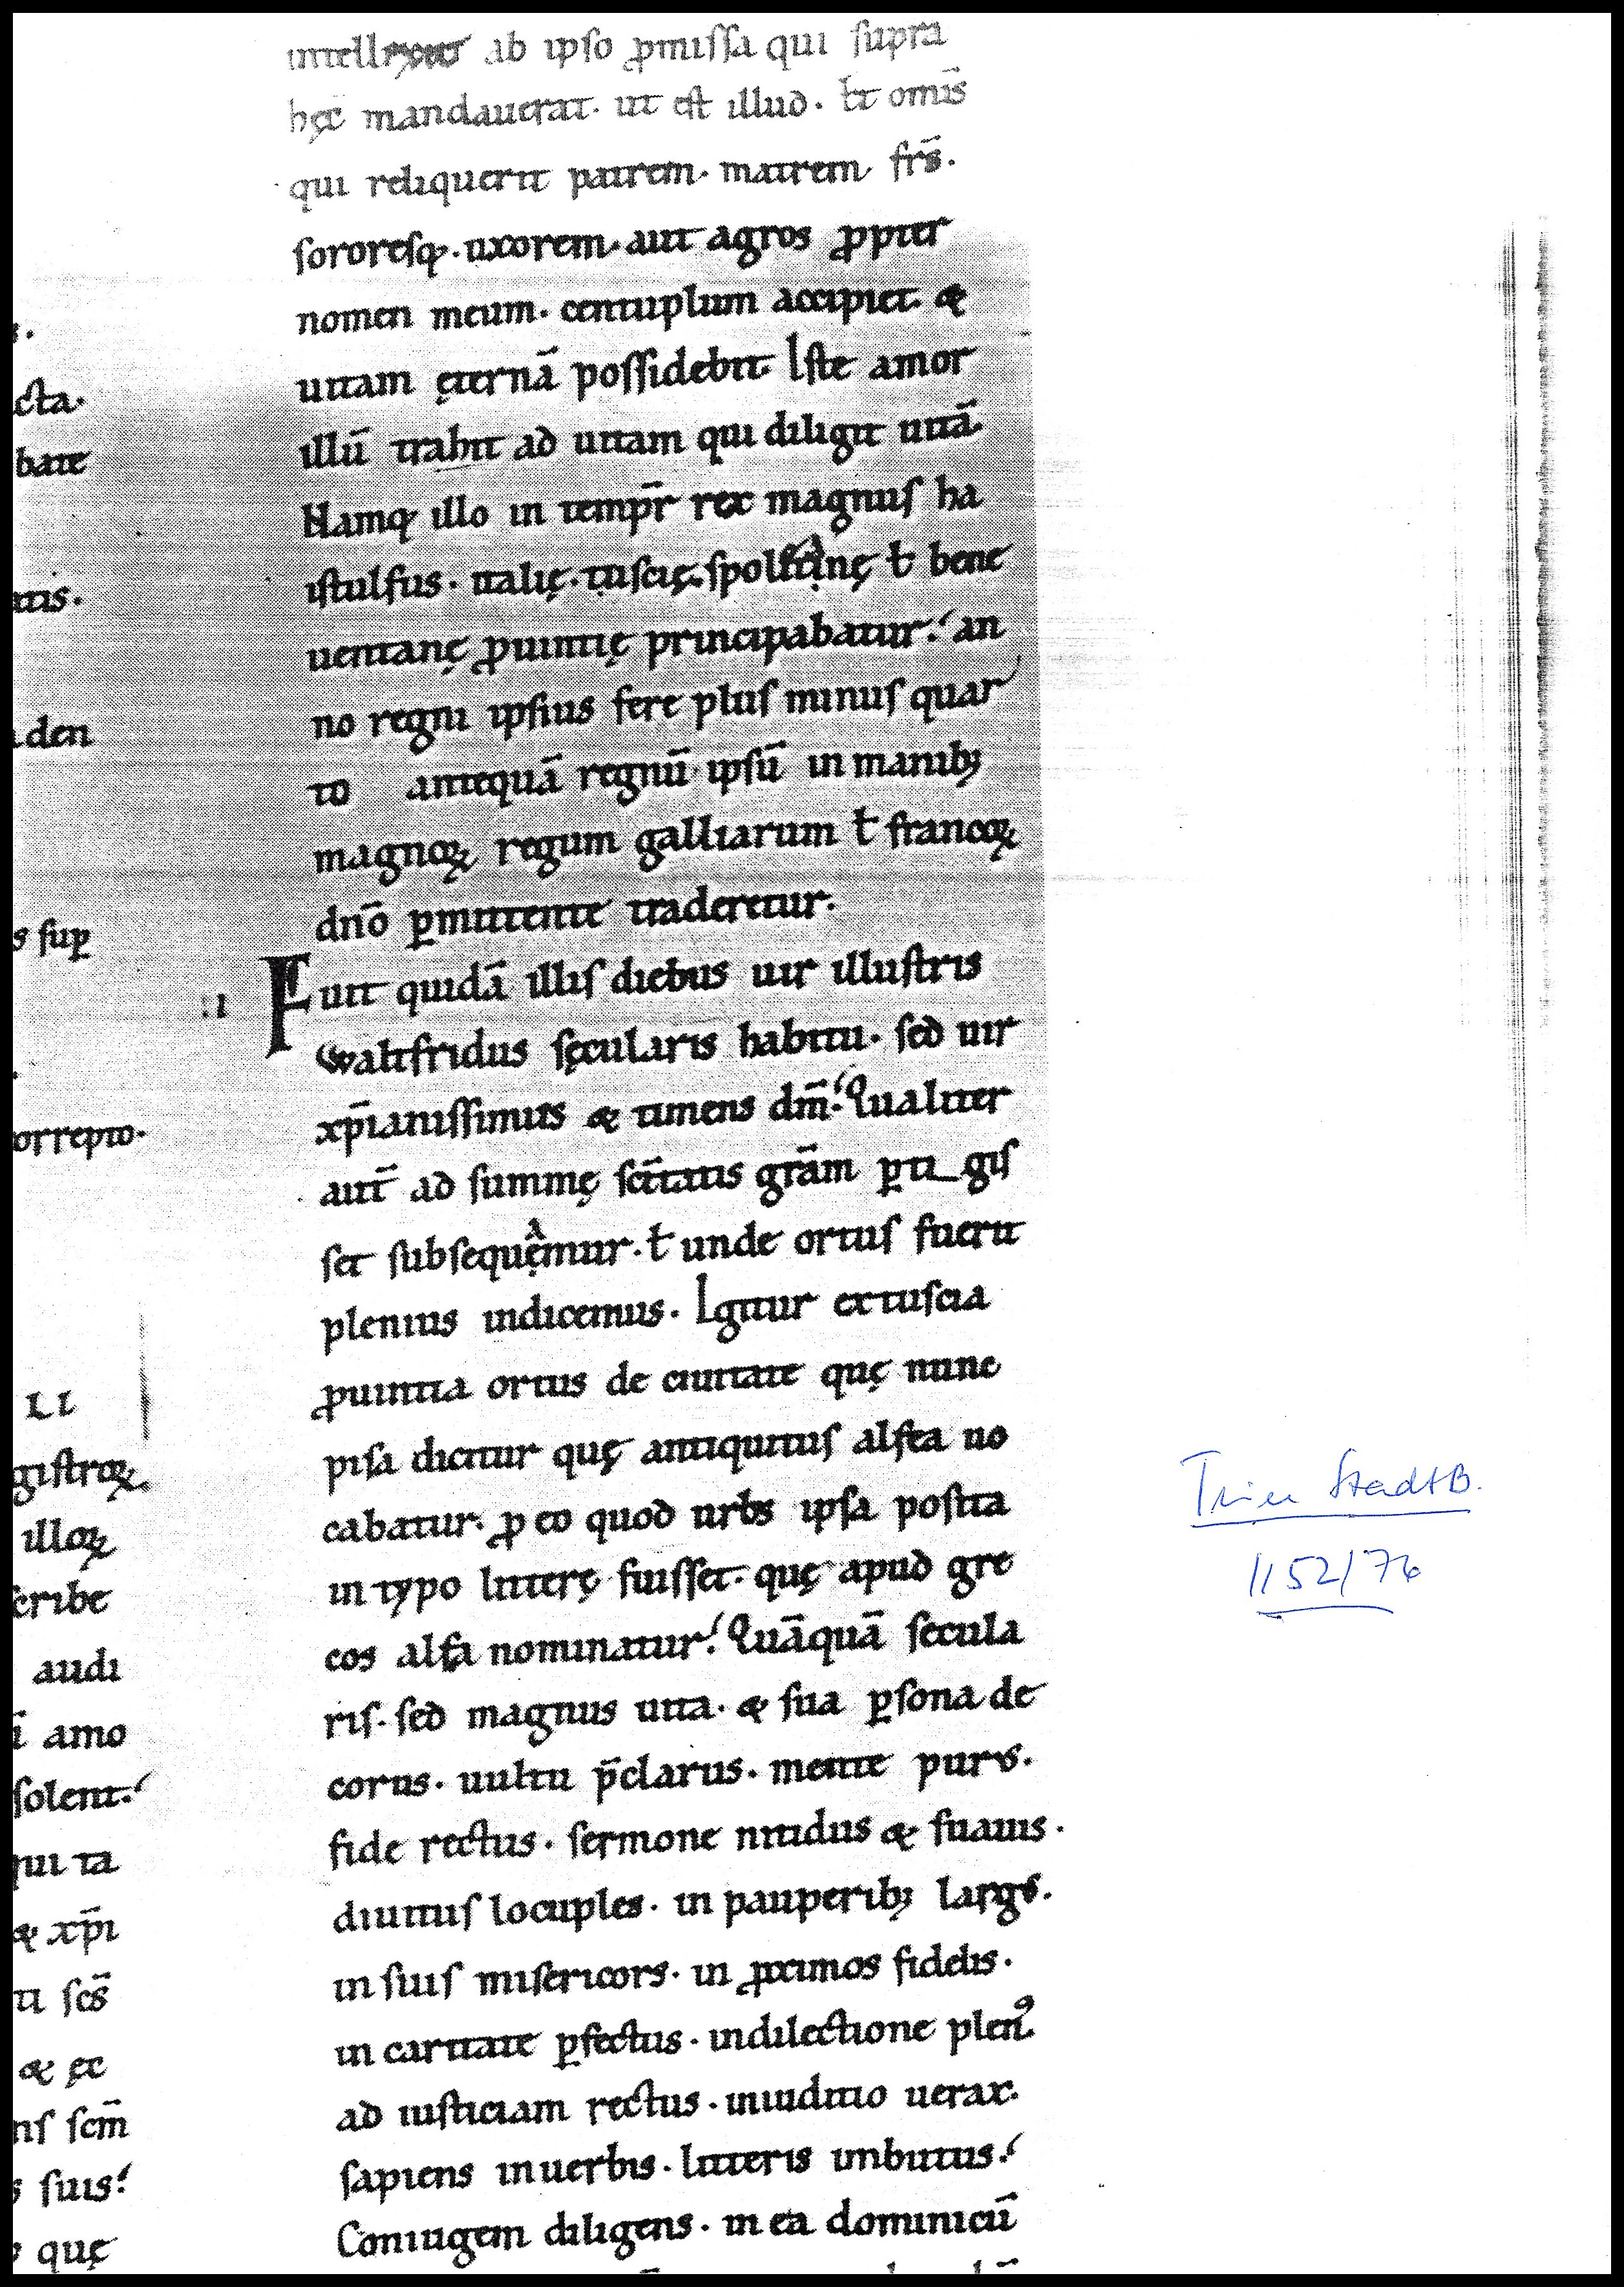 s.
cta.
bate
atis.
den
s sup̲
orrepto.
LI
gistroꝝ
illoꝝ
cribe
audi
ū amo
solent.
qui ta
& xp̄i
ti scs̄
& ęc
ns scm̄
s suis.
quę
ab ipso ꝓmissa qui supra
hęc mandauerat. ut est illud. omīs
qui reliquerit patrem. matrem. frs̄.
sororesq;. uxorem. aut agros ꝓpter
nomen meum. centuplum accipiet. &
uitam ęternā possidebit. Iste amor
illū trahit ad uitam qui diligit uitā.
Namq; illo in tempr̄ rex magnus ha
istulfus. italię. tuscię. ł bene
uentanę ꝓuintię principabatur. an
no regni ipsius fere plus minus quar
to antequā regnū ipsū in manib;
magnoꝝ regum galliarum ł francoꝝ
dn̄o ꝑmittente traderetur.
II Fuit quidā illis diebus uir illustris
Walifridus sęcularis habitu. sed uir
xp̄ianissimus & timens dm̄. Qualiter
aut̄ ad summę sc̄itatis grām ꝑti gis
set subsequemur. ł unde ortus fuerit
plenius indicemus. Igitur ex tuscia
ꝓuintia ortus de ciuitate quę nunc
pisa dicitur quę antiquitus alfea uo
cabatur. ꝓ eo quod urbs ipsa posita
in typo litterę fuisset. quę apud gre
cos alfa nominatur. Quāquā secula
ris. sed magnus uita. & sua ꝑsona de
corus. uultu p̄clarus. mente purus.
fide rectus. sermone nitidus & suauis.
diuitius locuples. in pauperib; largus.
in suis misericors. in ꝓximos fidelis.
in caritate ꝑfectus. in dilectione plenꝰ.
ad iusticiam rectus. in iuditio uerax.
sapiens in uerbis. litteris imbutus.
Coniugem diligens. in ea dominicū
Trier StadtB.
1152/76